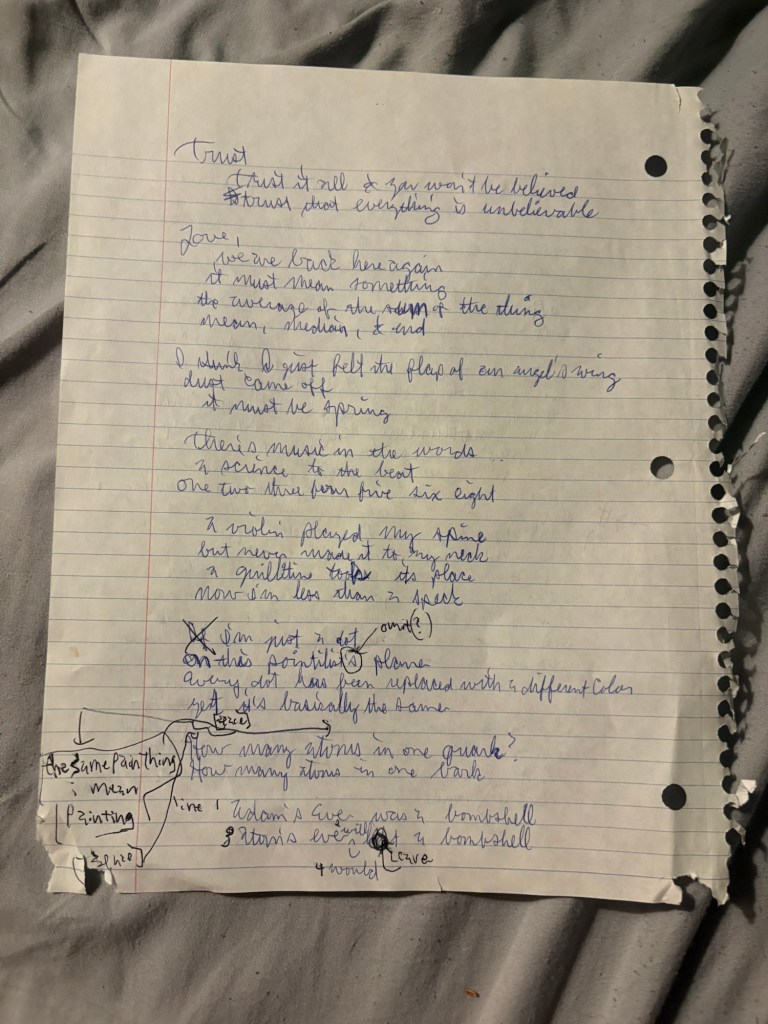 Trust
trust it all & you won't be believed
trust that everything is unbelievable
Love,
we are back here again
it must mean something
the average of the sum of the thing
mean, median, & end
I think I just felt the flap of an angel's wing
dust came off
it must be spring
there's music in the words
a science to the beat
one two three four five six eight
a violin played my spine
but never made it to my neck
a guillitine took its place
now i'm less than a speck
i'm just a dot
omit(?)
on this pointilist's plane
every dot has been replaced with a different color
yet it's basically the same
[space]
the same pain thing
i mean
painting
How many atoms in one quark?
How many atoms in one bark
line 1
Adam's Eve was a bombshell
Atom's eve will a bombshell
4 would
Leave
[space]